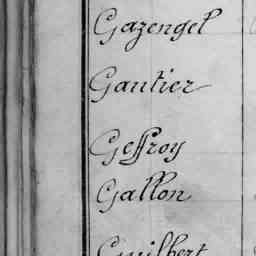 Gazengel
Gautier
Geffroy
Gallon
Guilbert